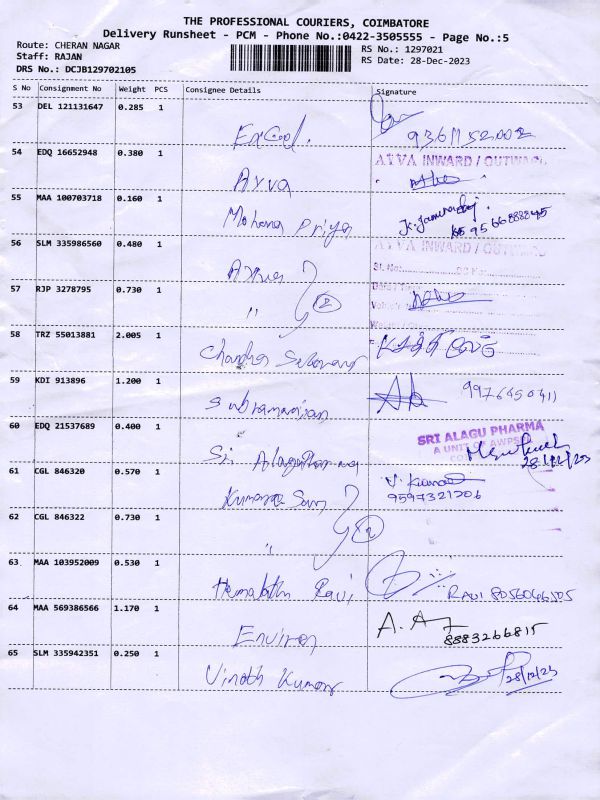 THE PROFESSIONAL COURIERS, COIMBATORE
Delivery Runsheet - PCM - Phone No.:0422-3505555 - Page No.:5
Route: CHERAN NAGAR
Staff: RAJAN
DRS No.: DCJB129702105
RS No.: 1297021
RS Date: 28-Dec-2023
S No Consignment No Weight PCS Consignee Details Signature
53 DEL 121131647 0.285 1
Excool.
54 EDQ 16652948 0.380 1 ATVA INWARD / OUTWARD
Atva
55 MAA 100703718 0.160 1
Mohana Priya
56 SLM 335986560 0.480 1 ATVA INWARD / OUTWARD
57 RJP 3278795 0.730 1
" 2
58 TRZ 55013881 2.005 1
Chandra
59 KDI 913896 1.200 1
Subramanian 9976450411
60 EDQ 21537689 0.400 1 SRI ALAGU PHARMA
A UNIT OF
Sri 28/12/23
61 CGL 846320 0.570 1 V. Kumar
9597321206
62 CGL 846322 0.730 1
"
63 MAA 103952009 0.530 1
Hemalatha Ravi RAVI
64 MAA 569386566 1.170 1 A. A
Environ 8883266815
65 SLM 335942351 0.250 1
Vinoth Kumar 28/12/23